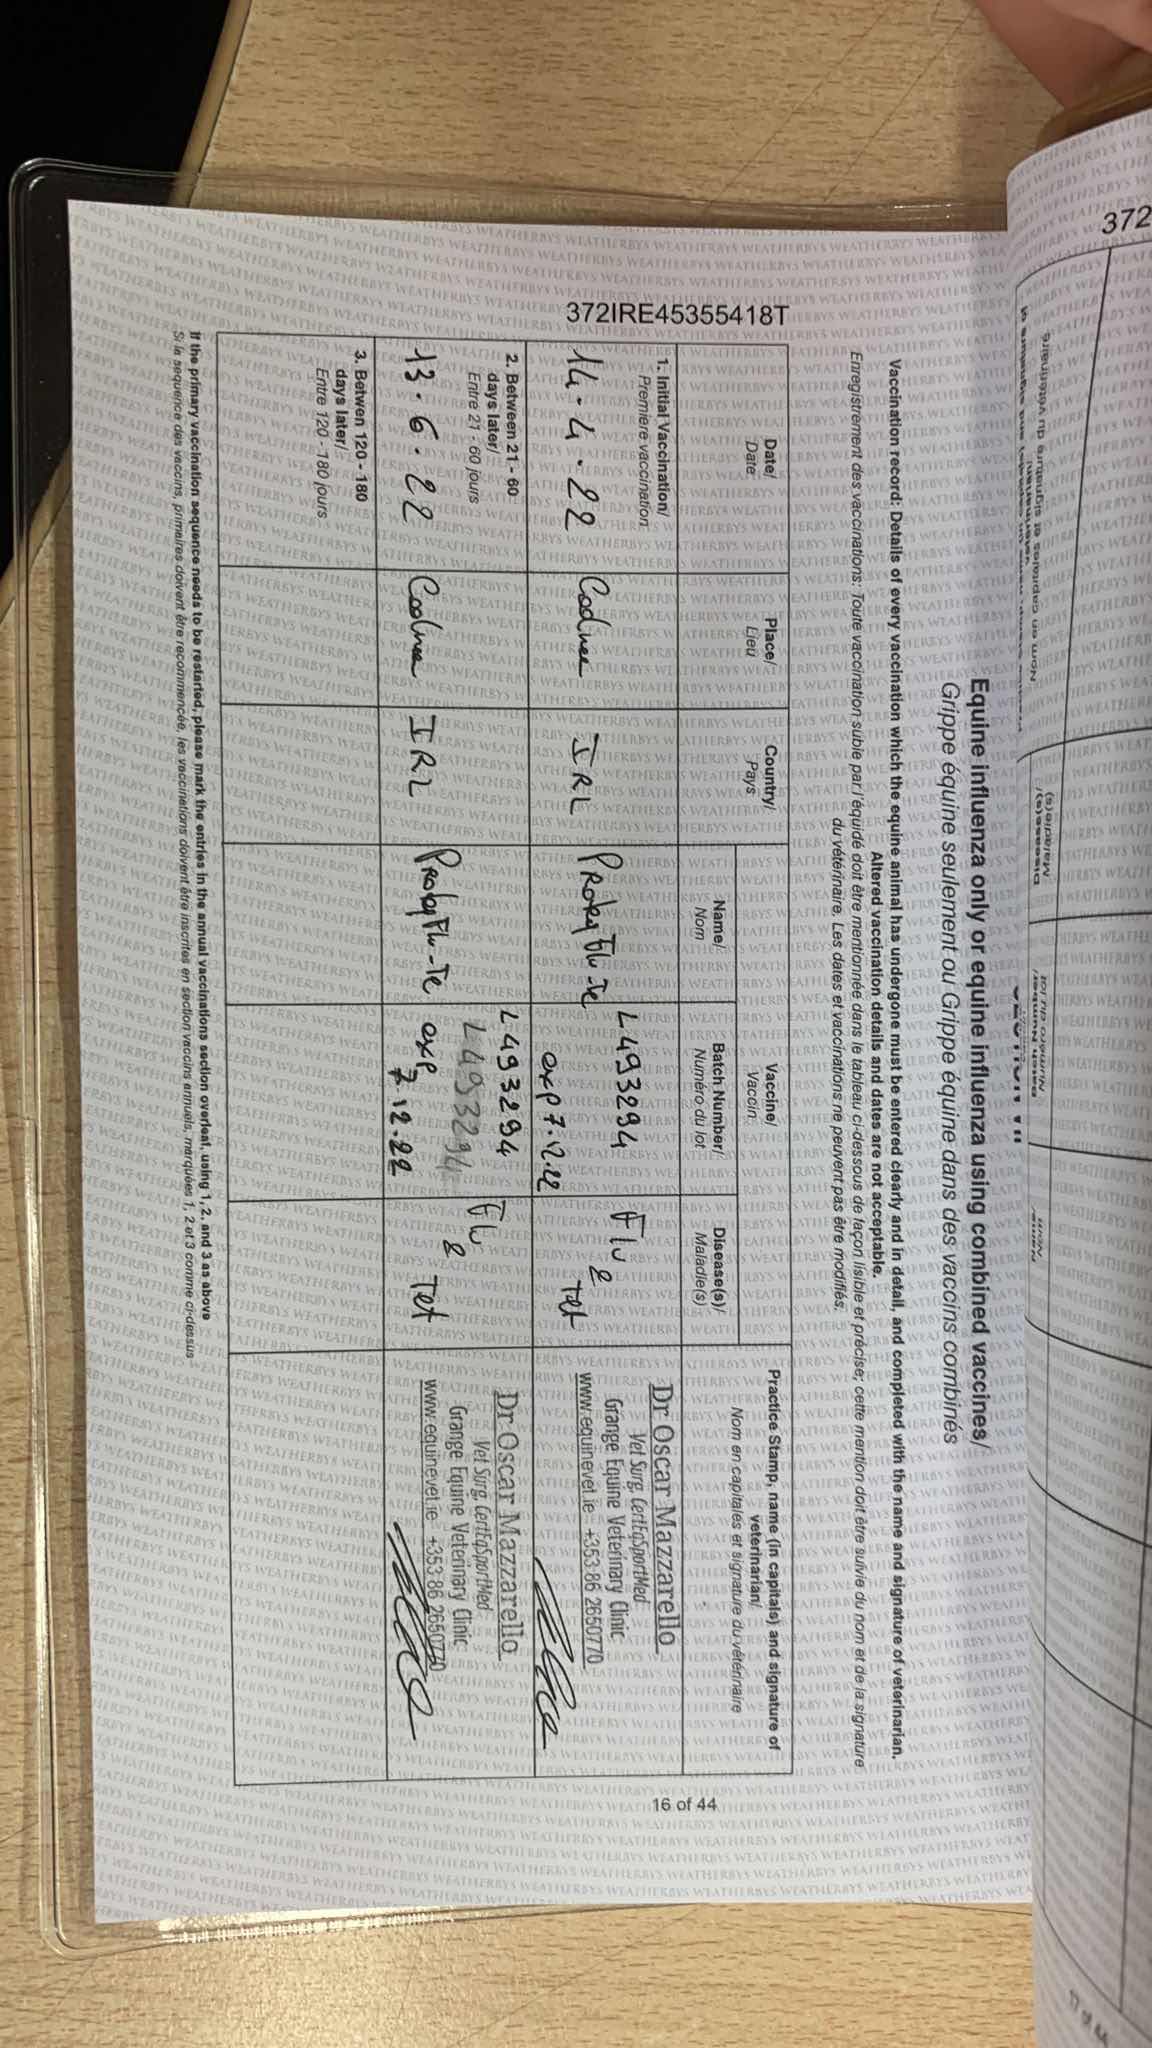 372IRE45355418T
Equine influenza only or equine influenza using combined vaccines/
Grippe équine seulement ou Grippe équine dans des vaccins combinés
Vaccination record: Details of every vaccination which the equine animal has undergone must be entered clearly and in detail, and completed with the name and signature of veterinarian.
Altered vaccination details and dates are not acceptable.
Enregistrement des vaccinations: Toute vaccination subie par l'équidé doit être mentionnée dans le tableau ci-dessous de façon lisible et précise; cette mention doit être suivie du nom et de la signature
du vétérinaire. Les dates et vaccinations ne peuvent pas être modifiés.
Date/
Date
Place/
Lieu
Country/
Pays
Vaccine/
Vaccin
Name/
Nom
Batch Number/
Numéro du lot
Disease(s)/
Maladie(s)
Practice Stamp, name (in capitals) and signature of
veterinarian/
Nom en capitales et signature du vétérinaire
1. Initial Vaccination/
Première vaccination
14.4.22
IRL
ProteqFlu-Te
L493294
Flu
&
Tet
Dr Oscar Mazzarello
Vet Surg, CertEqSportMed
Grange Equine Veterinary Clinic
www.equinevet.ie +353 86 2650770
2. Between 21 - 60
days later/
Entre 21 - 60 jours
13.6.22
IRL
ProteqFlu-Te
L493294
L493294
exp
7.12.22
Flu
&
Tet
Dr Oscar Mazzarello
Vet Surg, CertEqSportMed
Grange Equine Veterinary Clinic
www.equinevet.ie +353 86 2650770
3. Betwen 120 - 180
days later/
Entre 120 - 180 jours
If the primary vaccination sequence needs to be restarted, please mark the entries in the annual vaccinations section overleaf, using 1, 2, and 3 as above
Si la sequence des vaccins, primaires doivent être recommencée, les vaccinations doivent être inscrites en section vaccins annuels, marquées 1, 2 et 3 comme ci-dessus
16 of 44
372
17 of 44